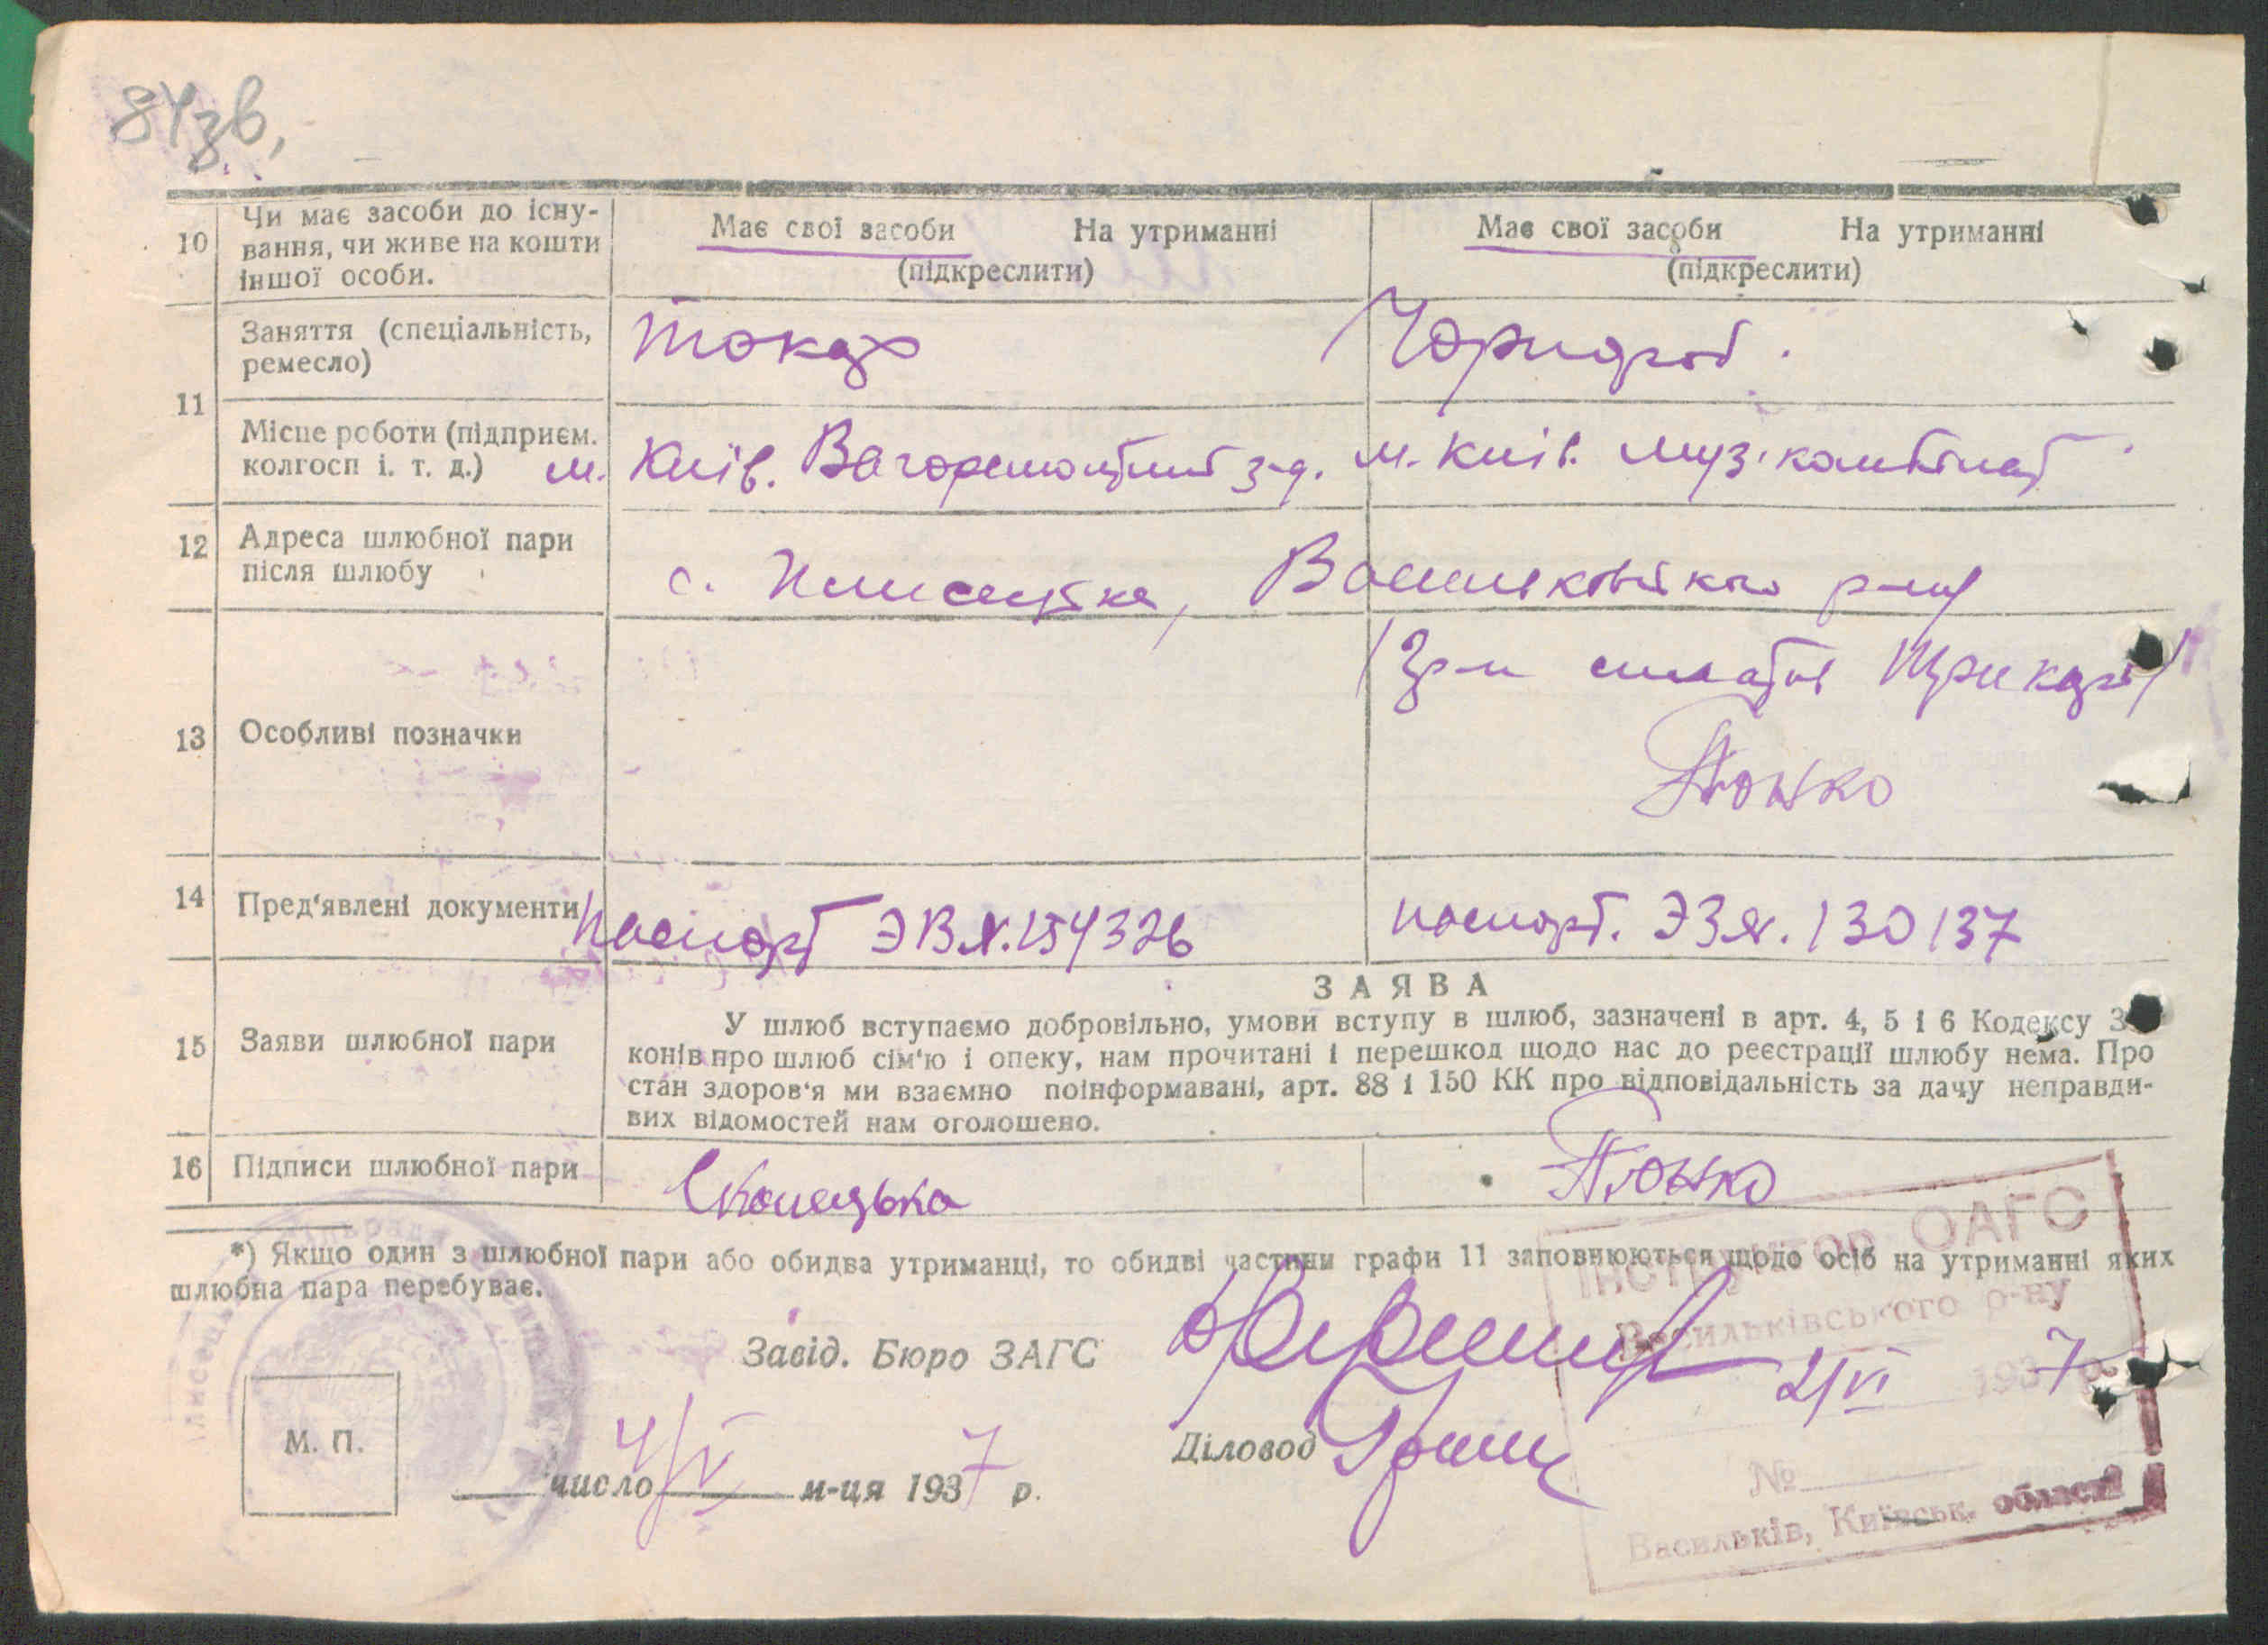 84зв.
10 Чи має засоби до існу-
вання, чи живе на кошти
іншої особи.
Має свої засоби На утриманні
(підкреслити)
Має свої засоби На утриманні
(підкреслити)
11
Заняття (спеціальність,
ремесло)
токар
Чорнороб.
Місце роботи (підприєм.
колгосп і. т. д.)
м. Київ. Вагоремонтний з-д.
м. Київ. муз. комбінат
12 Адреса шлюбної пари
після шлюбу
с. Плисецьке, Васильковського р-ну
13 Особливі позначки
Тюнко
14 Пред'явлені документи
паспорт ЭВ №. 154326
паспорт. ЭЗ №. 130137
15 Заяви шлюбної пари
ЗАЯВА
У шлюб вступаємо добровільно, умови вступу в шлюб, зазначені в арт. 4, 5 і 6 Кодексу За
конів про шлюб сім'ю і опеку, нам прочитані і перешкод щодо нас до реєстрації шлюбу нема. Про
стан здоров'я ми взаємно поінформавані, арт. 88 і 150 КК про відповідальність за дачу неправди-
вих відомостей нам оголошено.
16 Підписи шлюбної пари
Тюнко
*) Якщо один з шлюбної пари або обидва утриманці, то обидві частини графи 11 заповнюються щодо осіб на утриманні яких
шлюбна пара перебуває.
Інструктор ОАГС
Васильківського р-ну
4/VI 1937 р.
№
Васильків, Київськ. області
Завід. Бюро ЗАГС
Діловод
М. П.
число 4/VI м-ця 1937 р.